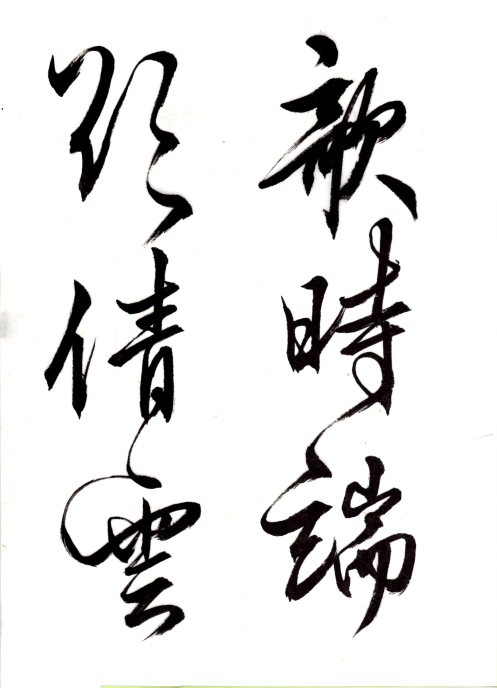 歌時端
欲倩雲